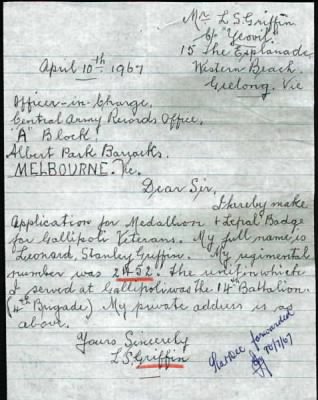 Mr L S Griffin
C/o "Yeovil"
15 The Esplanade
Western Beach.
Geelong. Vic
April 10th 1967
Officer-in-Charge,
Central Army Records Office,
"A" Block,
Albert Park Barracks.
MELBOURNE. Vic.
Dear Sir,
I hereby make
Application for Medallion & Lapel Badge
for Gallipoli Veterans. My full name is
Leonard, Stanley Griffin. My regimental
number was 2152. The unit on which
I served at Gallipoli was the 14th Battalion.
(4th Brigade) My private address is as
above.
Yours Sincerely
L.S. Griffin
forwarded
/7/67